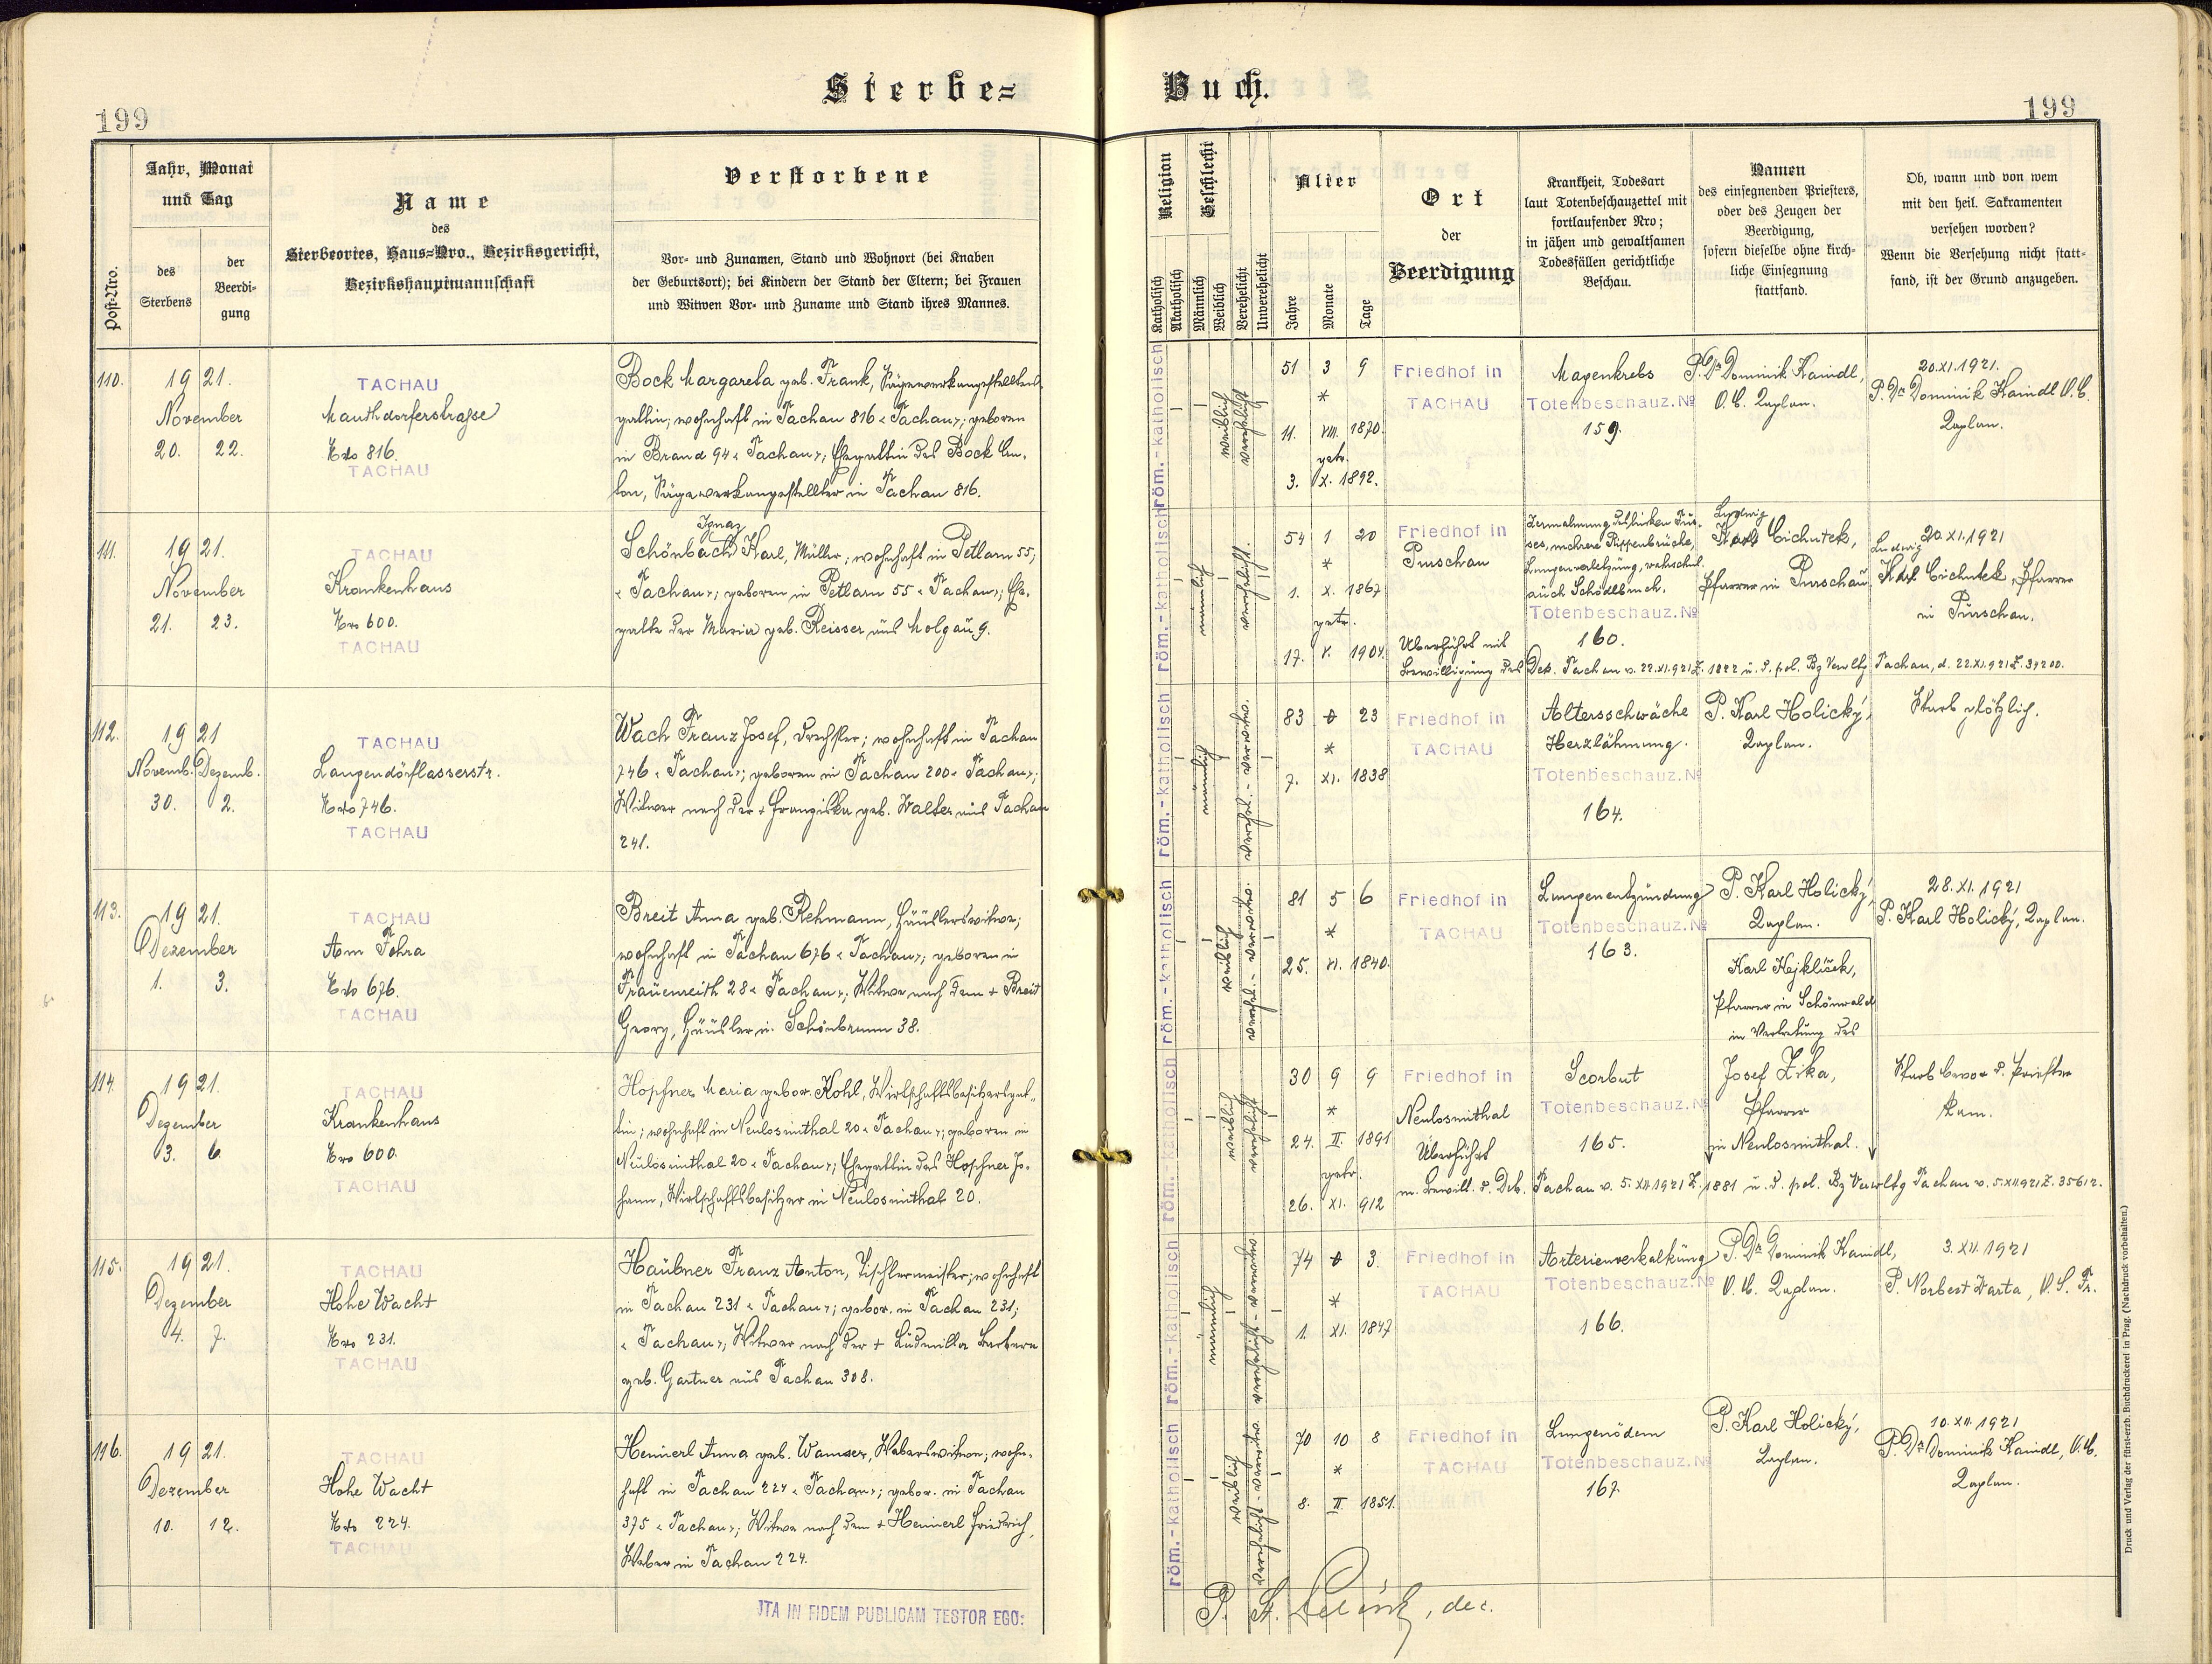 Sterbe=
Buch.
199
199
Post-Nro.
Jahr, Monat
und Tag
des
Sterbens
der
Beerdi-
gung
Name
des
Sterbeortes, Haus=Nro., Bezirksgericht,
Bezirkshauptmannschaft
Verstorbene
Vor- und Zunamen, Stand und Wohnort (bei Knaben
der Geburtsort); bei Kindern der Stand der Eltern; bei Frauen
und Witwen Vor- und Zuname und Stand ihres Mannes.
Religion
Katholisch
Akatholisch
Geschlecht
Männlich
Weiblich
Verehelicht
Unverehelicht
Alter
Jahre
Monate
Tage
Ort
der
Beerdigung
Krankheit, Todesart
laut Totenbeschauzettel mit
fortlaufender Nro;
in jähen und gewaltsamen
Todesfällen gerichtliche
Beschau.
Namen
des einsegnenden Priesters,
oder des Zeugen der
Beerdigung,
sofern dieselbe ohne kirch-
liche Einsegnung
stattfand.
Ob, wann und von wem
mit den heil. Sakramenten
versehen worden?
Wenn die Versehung nicht statt=
fand, ist der Grund anzugeben.
110.
1921.
November
20. 22.
TACHAU
Mauthdorferstrasse
Nro 816.
TACHAU
Bock Margareta geb. Frank, Sägewerkangestelltens-
gattin; wohnhaft in Tachau 816 "Tachau"; geboren
in Brand 94 "Tachau"; Ehegattin des Bock An-
ton, Sägewerkangestellter in Tachau 816.
röm.-katholisch
weiblich
verehelicht
51 3 9
*
11. VIII. 1870.
getr.
3. X. 1892.
Friedhof in
TACHAU
Magenkrebs
Totenbeschauz. №
159.
P. Dr Dominik Kaindl,
O. C. Kaplan.
20.XI.1921.
P. Dr Dominik Kaindl O.C.
Kaplan.
111.
1921.
November
21. 23.
TACHAU
Krankenhaus
Nro 600.
TACHAU
Ignaz
Schönbach Karl, Müller; wohnhaft in Petlarn 55,
"Tachau"; geboren in Petlarn 55 "Tachau"; Ehe-
gatte der Maria geb. Reisser aus Molgau 9.
röm.-katholisch
männlich
verehelicht.
54 1 20
*
1. X. 1867
getr.
17. X. 1904.
Friedhof in
Purschau
Überführt mit
Zermalmung des linken Fus-
ses, mehrere Rippenbrüche,
Lungenverletzung, wahrschl.
auch Schädelbruch.
Totenbeschauz. №
160.
Ludwig
Karl Cichutek,
Pfarrer in Purschau.
20.XI.1921
Ludwig
Karl Cichutek, Pfarrer
in Purschau.
Bewilligung des Dek. Tachau v. 22.XI.921 Z. 1822 u. d. pol. Bz Verwltg Tachau, d. 22.XI.921 Z. 34200.
112.
1921
Novemb. Dezemb.
30. 2.
TACHAU
Langendörflasserstr.
Nro 746.
TACHAU
Wach Franz Josef, Drechsler; wohnhaft in Tachau
746 "Tachau"; geboren in Tachau 200 "Tachau";
Witwer nach der + Franziska geb. Walter aus Tachau
241.
röm.-katholisch
männlich
verehel. - verwitw.
83 0 23
*
7. XI. 1838
Friedhof in
TACHAU
Altersschwäche
Herzlähmung.
Totenbeschauz. №
164.
P. Karl Holický,
Kaplan.
Starb plötzlich.
113.
1921.
Dezember
1. 3.
TACHAU
Am Fohra
Nro 676.
TACHAU
Breit Anna geb. Rehmann, Häuslerswitwe;
wohnhaft in Tachau 676 "Tachau"; geboren in
Frauenreith 28 "Tachau"; Witwe nach dem + Breit
Georg, Häusler in Schönbrunn 38.
röm.-katholisch
weiblich
verehel. - verwitw.
81 5 6
*
25. VI. 1840.
Friedhof in
TACHAU
Lungenentzündung
Totenbeschauz. №
163.
P. Karl Holický,
Kaplan.
28.XI.1921
P. Karl Holický, Kaplan.
114.
1921.
Dezember
3. 6.
TACHAU
Krankenhaus
Nro 600.
TACHAU
Hopfner Maria gebor. Kohl, Wirtschaftsbesitzersgat-
tin; wohnhaft in Neulosimthal 20 "Tachau"; geboren in
Neulosimthal 20 "Tachau"; Ehegattin des Hopfner Jo-
hann, Wirtschaftsbesitzer in Neulosimthal 20.
röm.-katholisch
weiblich
verehelicht
30 9 9
*
24. II. 1891
getr.
26. XI. 912
Friedhof in
Neulosimthal
Überführt
Scorbut
Totenbeschauz. №
165.
Karl Hejkliček,
Pfarrer in Schönwald
in Vertretung des
Josef Zika,
Pfarrer
in Neulosimthal.
Starb bevor d. Priester
kam.
m. Bewill. d. Dek. Tachau v. 5.XII.1921 Z. 1881 u. d. pol. Bz Verwltg Tachau v. 5.XII.921 Z. 35612.
115.
1921.
Dezember
4. 7.
TACHAU
Hohe Wacht
Nro 231.
TACHAU
Haubner Franz Anton, Tischlermeister; wohnhaft
in Tachau 231 "Tachau"; gebor. in Tachau 231;
"Tachau"; Witwer nach der + Ludmilla Barbara
geb. Gartner aus Tachau 308.
röm.-katholisch
männlich
verehelicht - verwitwet
74 0 3.
*
1. XI. 1847
Friedhof in
TACHAU
Arterienverkalkung
Totenbeschauz. №
166.
P. Dr Dominik Kaindl,
O. C. Kaplan.
3.XII.1921
P. Norbert Warta, O.S.Fr.
116.
1921.
Dezember
10. 12.
TACHAU
Hohe Wacht
Nro 224.
TACHAU
Heinerl Anna geb. Wamser, Weberswitwe; wohn-
haft in Tachau 224 "Tachau"; gebor. in Tachau
375 "Tachau"; Witwe nach dem + Heinerl Friedrich,
Weber in Tachau 224.
röm.-katholisch
weiblich
verehelicht - verwitw.
70 10 8
*
8. II 1851.
Friedhof in
TACHAU
Lungenödem
Totenbeschauz. №
167.
P. Karl Holický,
Kaplan.
10.XII.1921
P. Dr Dominik Kaindl, O.C.
Kaplan.
JTA IN FIDEM PUBLICAM TESTOR EGO:
P. , dec.
Druck und Verlag der fürst-erzb. Buchdruckerei in Prag. (Nachdruck vorbehalten.)